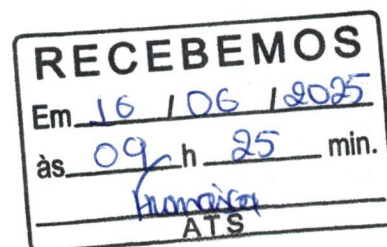 RECEBEMOS
Em 16 / 06 / 2025
às 09 h 25 min.
ATS